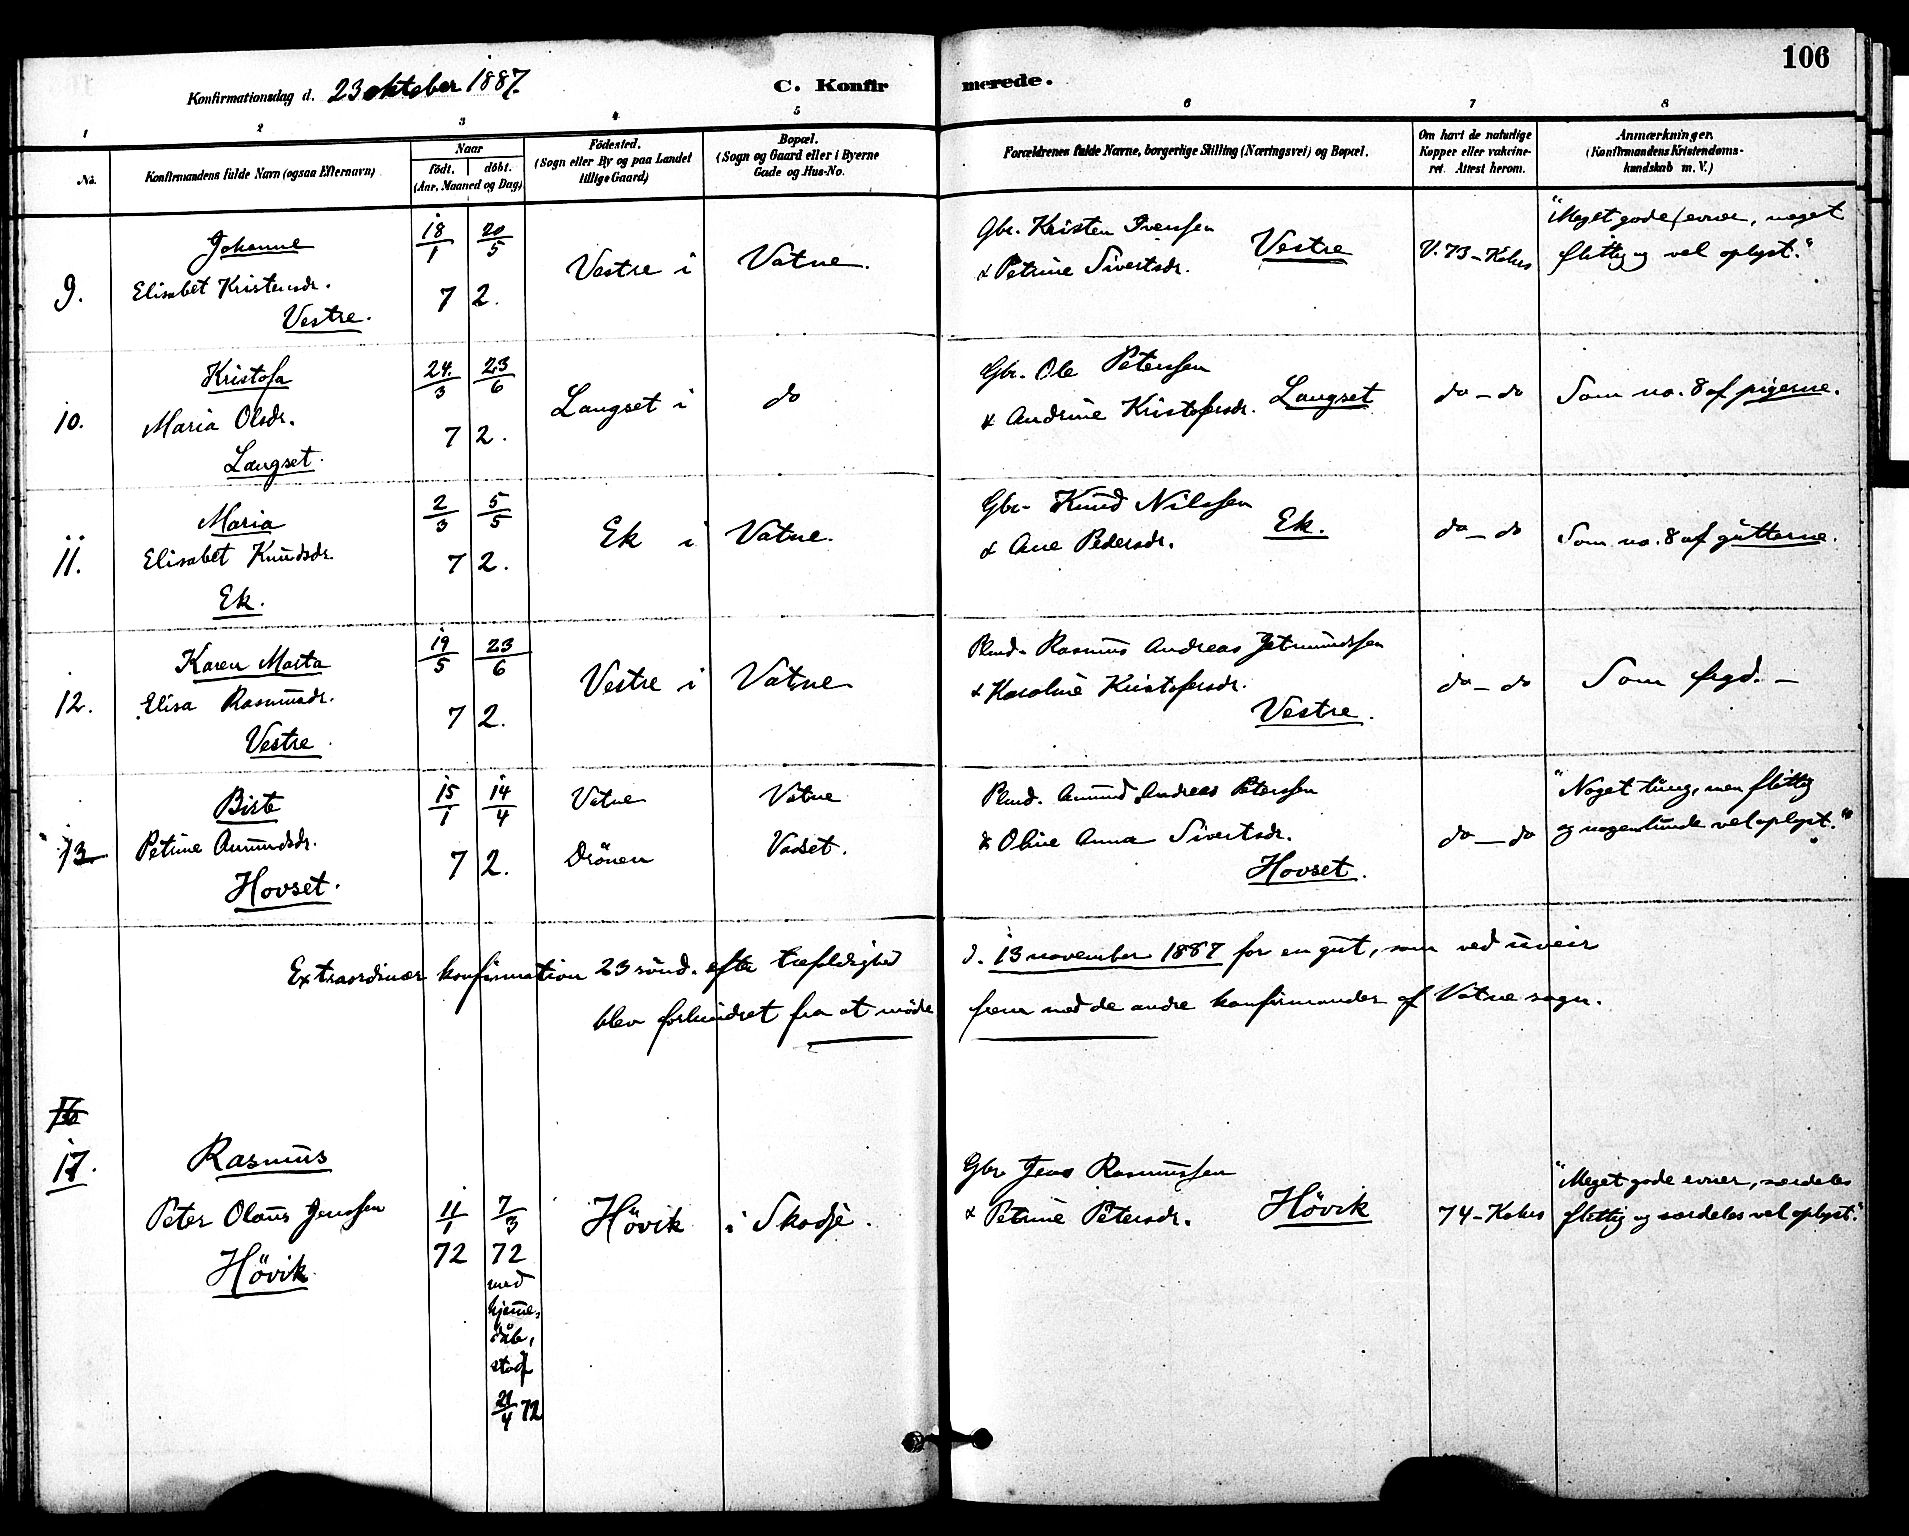 106
Konfirmationsdag d. 23 oktober 1887. C. Konfirmerede.
1 2 3 4 5 6 7 8
No.
Konfirmandens fulde Navn (ogsaa Efternavn)
Naar
födt. döbt.
(Aar, Maaned og Dag)
Födested.
(Sogn eller By og paa Landet
tillige Gaard)
Bopæl.
(Sogn og Gaard eller i Byerne
Gade og Hus-No.
Forældrenes fulde Navne, borgerlige Stilling (Næringsvei) og Bopæl.
Om havt de naturlige
Kopper eller vakcine-
ret. Attest herom.
Anmærkninger.
(Konfirmandens Kristendoms-
kundskab m. V.)
9.
Johanne
Elisabet Kristensdr.
Vestre.
18/1 20/5
7 2.
Vestre i Vatne.
Gbr. Kristen Iversen
& Petrine Sivertsdr. Vestre
V. 73 - Kolus
"Meget gode evner, meget
flittig og vel oplyst."
10.
Kristofa
Maria Olsdr.
Langset.
24./3 23/6
7 2.
Langset i do
Gbr. Ole Petersen
& Andrine Kristofersdr. Langset
do - do
Som no. 8 af pigerne.
11.
Maria
Elisabet Knudsdr.
Ek.
2/3 5/5
7 2.
Ek i Vatne.
Gbr. Knud Nilssen
& Ane Pedersdr. Ek.
do - do
Som no. 8 af gutterne.
12.
Karen Marta
Elisa Rasmusdr.
Vestre
19/5 23/6
7 2.
Vestre i Vatne
Plmd. Rasmus Andreas Jetmundssen
& Karoline Kristofersdr.
Vestre.
do - do
Som frgd. -
13
Birte
Petrine Amundsdr.
Hovset.
15/1 14/4
7 2.
Vatne
Drönen
Vatne
Vadset.
Plmd. Amund Andreas Petersen
& Oline Anna Sivertsdr.
Hovset.
do - do
"Noget tung, men flittig
og nogenlunde vel oplyst."
Extraordinær konfirmation 23 sönd. efter trefoldighed d. 13 november 1887 for en gut, som ved uveir
blev forhindret fra at møde frem med de andre konfirmander af Vatne sogn.
17.
Rasmus
Peter Olaus Jenssen
Hövik
11/1 7/3
72 72
med
hjemme-
dåb,
stadf
21/4 72
Hövik i Skodje.
Gbr. Jens Rasmussen
& Petrine Petersdr. Hövik
74 - Kolus
"Meget gode evner, særdeles
flittig og særdeles vel oplyst."